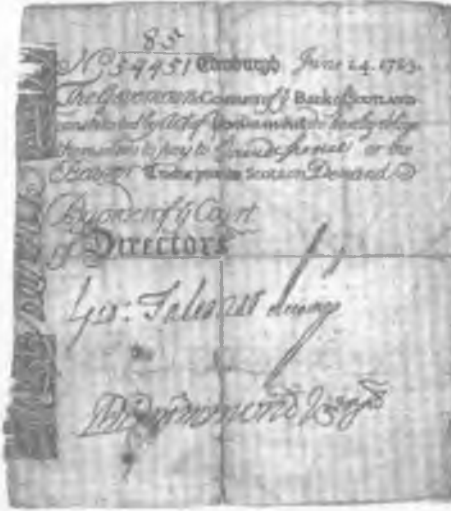 85
No 54451 Edinburgh June 24. 1723.
The Governour & Company of ye Bank of Scotland
constituted by Act of Parliament do hereby oblige
themselves to pay to or the
Bearer Twelve pounds Scots on Demand
By order of ye Court
of Directors
Geo:
Drummond